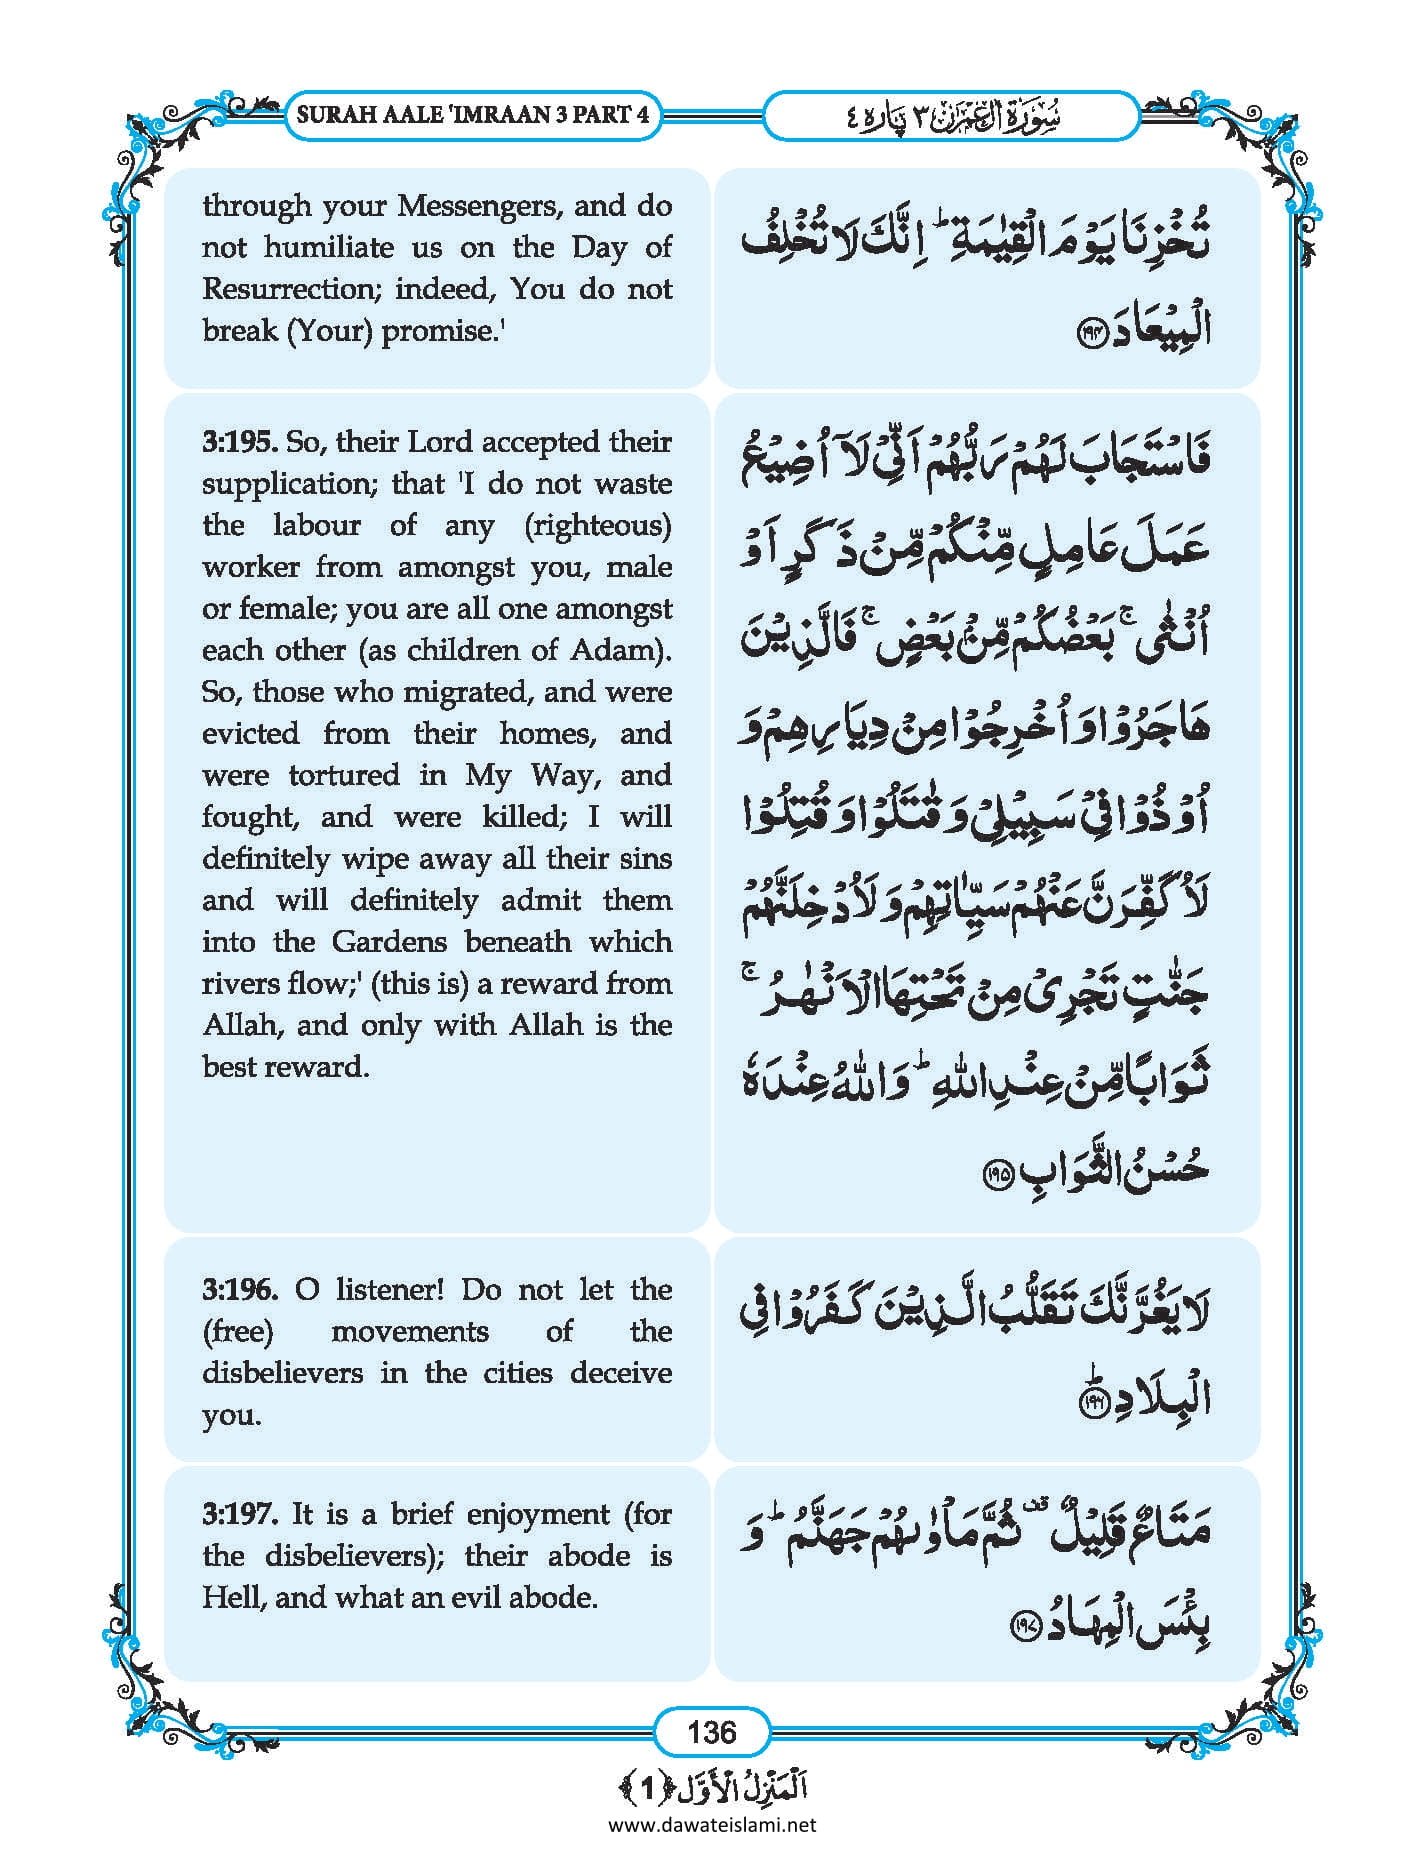 SURAH AALE 'IMRAAN 3 PART 4
سُوْرَةُ اٰلِ عِمْرٰن ٣ پاره ٤
through your Messengers, and do
not humiliate us on the Day of
Resurrection; indeed, You do not
break (Your) promise.'
تُخْزِنَا يَوْمَ الْقِيٰمَةِ ؕ اِنَّكَ لَا تُخْلِفُ
الْمِيْعَادَ ﴿۱۹۴﴾
3:195. So, their Lord accepted their
supplication; that 'I do not waste
the labour of any (righteous)
worker from amongst you, male
or female; you are all one amongst
each other (as children of Adam).
So, those who migrated, and were
evicted from their homes, and
were tortured in My Way, and
fought, and were killed; I will
definitely wipe away all their sins
and will definitely admit them
into the Gardens beneath which
rivers flow;' (this is) a reward from
Allah, and only with Allah is the
best reward.
فَاسْتَجَابَ لَهُمْ رَبُّهُمْ اَنِّیْ لَاۤ اُضِیْعُ
عَمَلَ عَامِلٍ مِّنْكُمْ مِّنْ ذَكَرٍ اَوْ
اُنْثٰی ۚ بَعْضُكُمْ مِّنْۢ بَعْضٍ ۚ فَالَّذِیْنَ
هَاجَرُوْا وَ اُخْرِجُوْا مِنْ دِیَارِهِمْ وَ
اُوْذُوْا فِیْ سَبِیْلِیْ وَ قٰتَلُوْا وَ قُتِلُوْا
لَاُكَفِّرَنَّ عَنْهُمْ سَیِّاٰتِهِمْ وَ لَاُدْخِلَنَّهُمْ
جَنّٰتٍ تَجْرِیْ مِنْ تَحْتِهَا الْاَنْهٰرُ ۚ
ثَوَابًا مِّنْ عِنْدِ اللّٰهِ ؕ وَ اللّٰهُ عِنْدَهٗ
حُسْنُ الثَّوَابِ ﴿۱۹۵﴾
3:196. O listener! Do not let the
(free) movements of the
disbelievers in the cities deceive
you.
لَا یَغُرَّنَّكَ تَقَلُّبُ الَّذِیْنَ كَفَرُوْا فِی
الْبِلَادِ ﴿۱۹۶﴾ؕ
3:197. It is a brief enjoyment (for
the disbelievers); their abode is
Hell, and what an evil abode.
مَتَاعٌ قَلِیْلٌ ۫ ثُمَّ مَاْوٰىهُمْ جَهَنَّمُ ؕ وَ
بِئْسَ الْمِهَادُ ﴿۱۹۷﴾
136
اَلْمَنْزِلُ الْاَوَّل ﴿1﴾
www.dawateislami.net